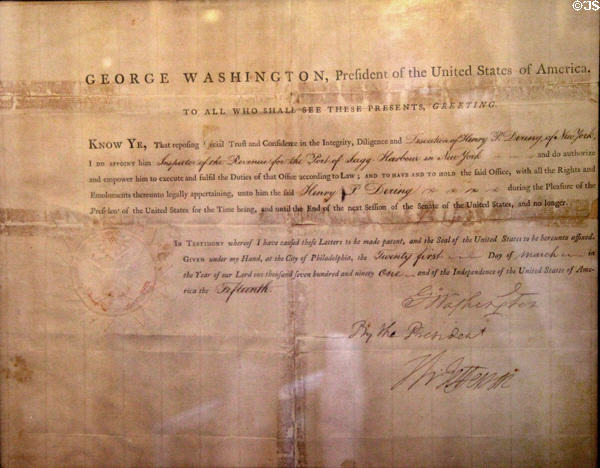 © JS
GEORGE WASHINGTON, President of the United States of America.
TO ALL WHO SHALL SEE THESE PRESENTS, GREETING.
KNOW YE, That reposing special Trust and Confidence in the Integrity, Diligence and Discretion of Henry P. Dering, of New York,
I DO APPOINT him Inspector of the Revenue for the Port of Sagg Harbour in New York and do authorize
and empower him to execute and fulfil the Duties of that Office according to LAW; AND TO HAVE AND TO HOLD the said Office, with all the Rights and
Emoluments thereunto legally appertaining, unto him the said Henry P Dering during the Pleasure of the
President of the United States for the Time being, and until the End of the next Session of the Senate of the United States, and no longer.
IN TESTIMONY whereof I have caused these Letters to be made patent, and the Seal of the United States to be hereunto affixed.
GIVEN under my Hand, at the City of Philadelphia, the Twenty first Day of March in
the Year of our Lord one thousand seven hundred and ninety One and of the Independence of the United States of Ame-
rica the Fifteenth.
G. Washington
By the President
Th: Jefferson